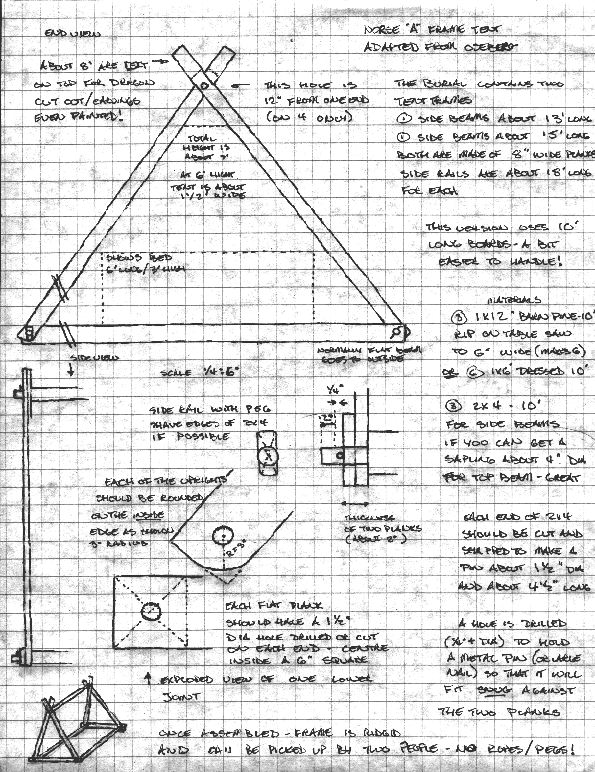 END VIEW
ABOUT 8" ARE LEFT
ON TOP FOR DRAGON
CUT OUT/CARVINGS
EVEN PAINTED!
THIS HOLE IS
12" FROM ONE END
(ON 4 ONLY)
TOTAL
HEIGHT IS
ABOUT 7'
AT 6' HIGHT
TENT IS ABOUT
1 1/2' WIDE
SHOWS BED
6' LONG/2' HIGH
NORMALLY FLAT BEAM
GOES TO OUTSIDE
NORSE "A" FRAME TENT
ADAPTED FROM OSEBERG
THE BURIAL CONTAINS TWO
TENT FRAMES
① SIDE BEAMS ABOUT 13' LONG
① SIDE BEAMS ABOUT 15' LONG
BOTH ARE MADE OF 8" WIDE PLANKS
SIDE RAILS ARE ABOUT 18' LONG
FOR EACH
THIS VERSION USES 10'
LONG BOARDS - A BIT
EASIER TO HANDLE!
MATERIALS
③ 1X12" BARN PINE-10'
RIP ON TABLE SAW
TO 6" WIDE (MAKES 6)
OR ⑥ 1X6" DRESSED 10'
③ 2X4 - 10'
FOR SIDE BEAMS
IF YOU CAN GET A
SAPLING ABOUT 4" DIA
FOR TOP BEAM - GREAT
EACH END OF 2X4
SHOULD BE CUT AND
SHAPED TO MAKE A
PIN ABOUT 1 1/2" DIA
AND ABOUT 4 1/2" LONG
A HOLE IS DRILLED
(1/4"+ DIA) TO HOLD
A METAL PIN (OR LARGE
NAIL) SO THAT IT WILL
FIT SNUG AGAINST
THE TWO PLANKS
SIDE VIEW
SCALE 1/4 = 6"
SIDE RAIL WITH PEG
SHAVE EDGES OF 2X4
IF POSSIBLE
1/4"
THICKNESS
OF TWO PLANKS
(ABOUT 2")
EACH OF THE UPRIGHTS
SHOULD BE ROUNDED
ON THE INSIDE
EDGE AS SHOWN
3" RADIUS
R=3"
EACH FLAT PLANK
SHOULD HAVE A 1 1/2"
DIA HOLE DRILLED OR CUT
ON EACH END - CENTRE
INSIDE A 6" SQUARE
↑ EXPLODED VIEW OF ONE LOWER
JOINT
ONCE ASSEMBLED - FRAME IS RIDGID
AND CAN BE PICKED UP BY TWO PEOPLE - NO ROPES/PEGS!